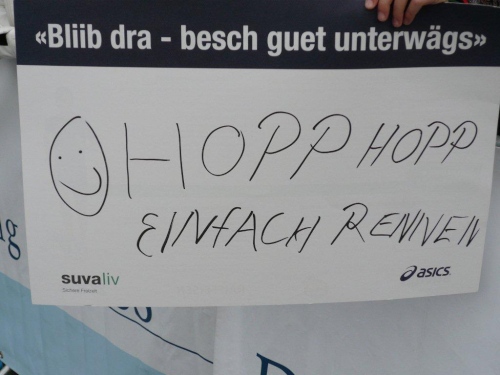 «Bliib dra - besch guet unterwägs»
HOPP HOPP
EINFACH RENNEN
suvaliv
asics